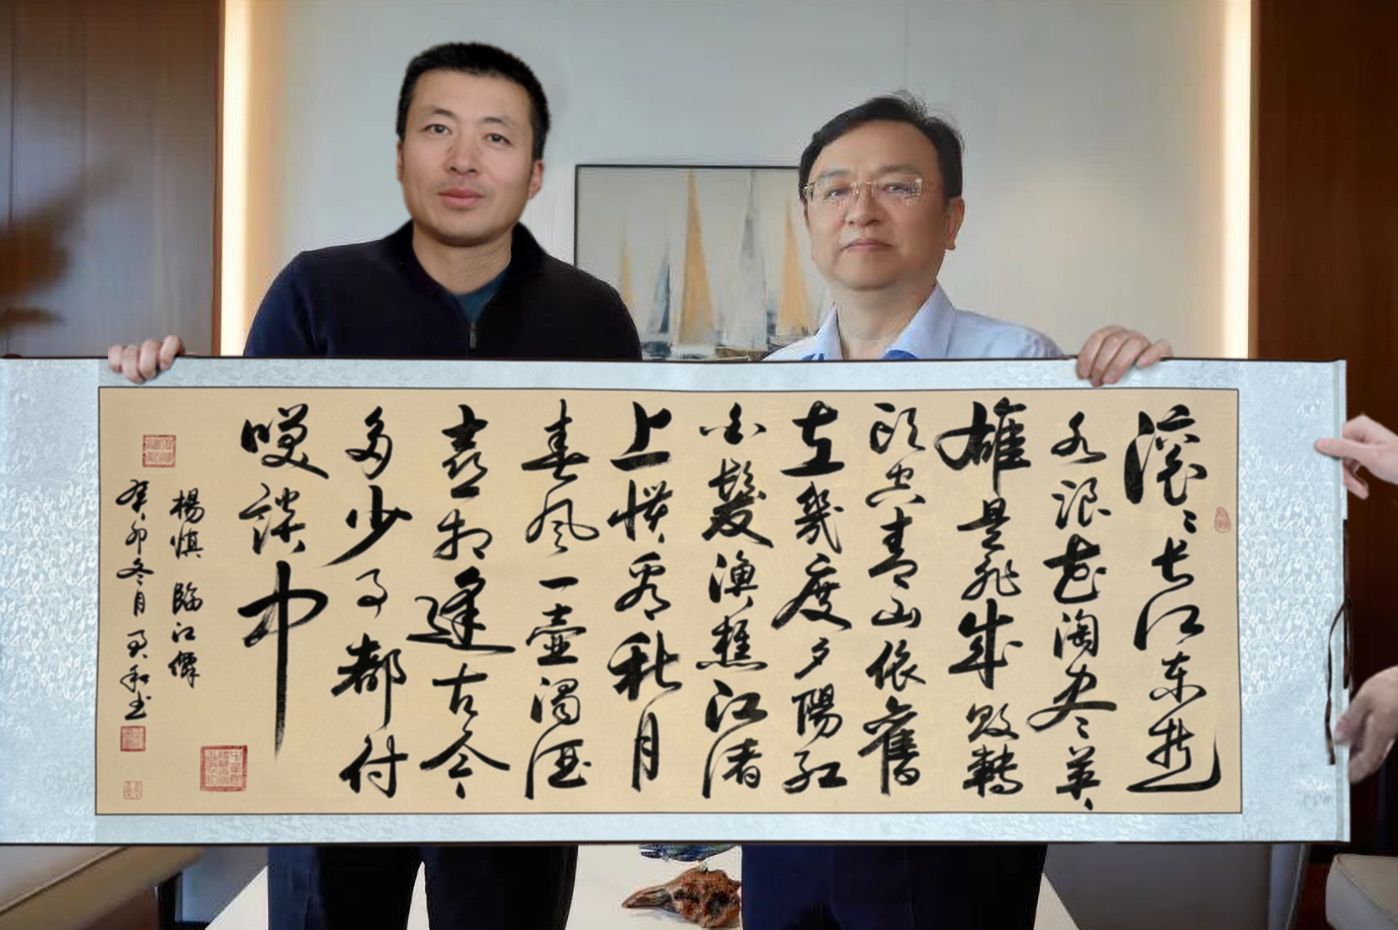 滚〻长江东逝
水浪花淘尽英
雄是非成败轉
头空青山依舊
在幾度夕陽红
白髮渔樵江渚
上惯看秋月
春风一壶濁酒
喜相逢古今
多少事都付
咲談中
楊慎临江僊
癸卯冬月